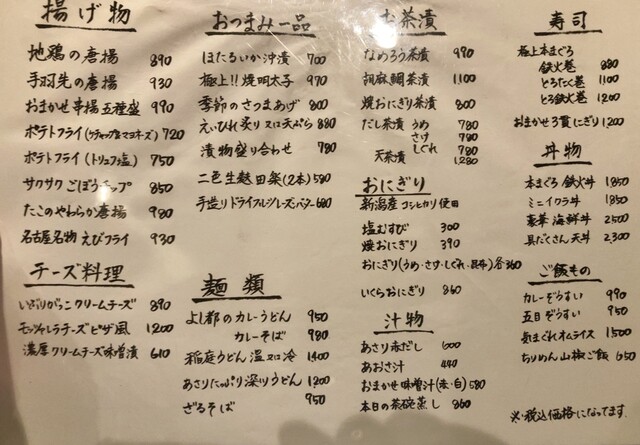 揚げ物
地鶏の唐揚 890
手羽先の唐揚 930
おまかせ串揚五種盛 990
ポテトフライ(ケチャップ&マヨネーズ) 720
ポテトフライ(トリュフ塩) 750
サクサクごぼうチップ 850
たこのやわらか唐揚 980
名古屋名物えびフライ 930
チーズ料理
いぶりがっこクリームチーズ 890
モッツァレラチーズピザ風 1200
濃厚クリームチーズ味噌漬 610
おつまみ一品
ほたるいか沖漬 700
極上!!焼明太子 970
季節のさつまあげ 800
えいひれ炙り又は天ぷら 880
漬物盛り合わせ 780
二色生麩田楽(2本) 580
手造りドライフルーツレーズンバター 680
麺類
よし都のカレーうどん 950
カレーそば 980
稲庭うどん 温又は冷 1400
あさりたっぷり深川うどん 1200
ざるそば 950
お茶漬
なめろう茶漬 990
胡麻鯛茶漬 1100
焼おにぎり茶漬 800
だし茶漬 うめ 780
さけ 780
しぐれ 780
天茶漬 1,280
おにぎり
新潟産コシヒカリ使用
塩むすび 300
焼おにぎり 390
おにぎり(うめ・さけ・しぐれ・昆布)各360
いくらおにぎり 860
汁物
あさり赤だし 600
あおさ汁 440
おまかせ味噌汁(赤・白) 580
本日の茶碗蒸し 860
寿司
極上本まぐろ
鉄火巻 880
とろたく巻 1100
とろ鉄火巻 1200
おまかせ3貫にぎり 1,200
丼物
本まぐろ鉄火丼 1850
ミニイクラ丼 1850
豪華海鮮丼 2500
具だくさん天丼 2,300
ご飯もの
カレーぞうすい 990
五目ぞうすい 950
気まぐれオムライス 1500
ちりめん山椒ご飯 650
※税込価格になってます。